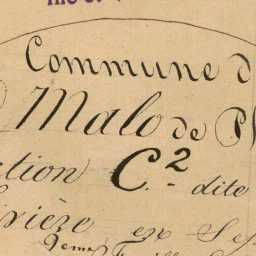 Commune d
Malo de Ph
ction C.² dite
ivière en Sep
2eme